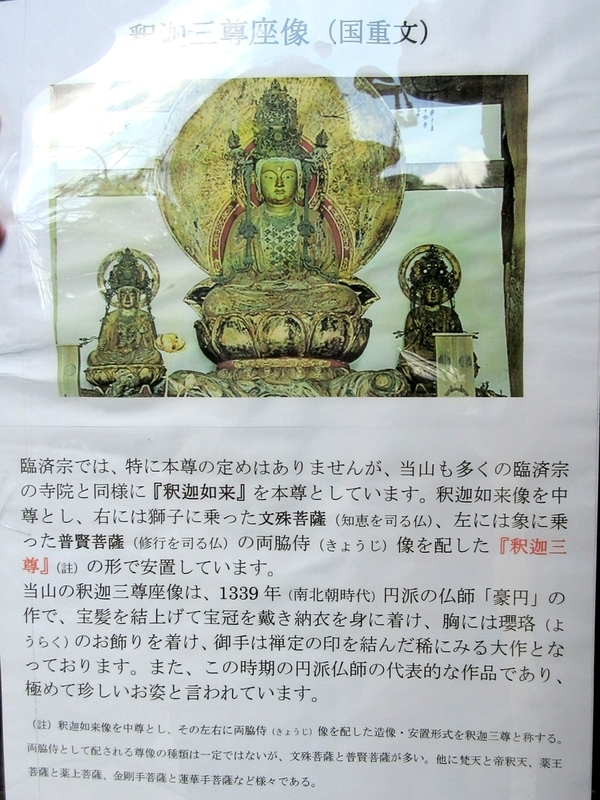 釈迦三尊座像（国重文）
臨済宗では、特に本尊の定めはありませんが、当山も多くの臨済宗
の寺院と同様に『釈迦如来』を本尊としています。釈迦如来像を中
尊とし、右には獅子に乗った文殊菩薩（知恵を司る仏）、左には象に乗
った普賢菩薩（修行を司る仏）の両脇侍（きょうじ）像を配した『釈迦三
尊』（註）の形で安置しています。
当山の釈迦三尊座像は、1339年（南北朝時代）円派の仏師「豪円」の
作で、宝髪を結上げて宝冠を戴き納衣を身に着け、胸には瓔珞（よ
うらく）のお飾りを着け、御手は禅定の印を結んだ稀にみる大作とな
っております。また、この時期の円派仏師の代表的な作品であり、
極めて珍しいお姿と言われています。
（註）釈迦如来像を中尊とし、その左右に両脇侍（きょうじ）像を配した造像・安置形式を釈迦三尊と称する。
両脇侍として配される尊像の種類は一定ではないが、文殊菩薩と普賢菩薩が多い。他に梵天と帝釈天、薬王
菩薩と薬上菩薩、金剛手菩薩と蓮華手菩薩など様々である。